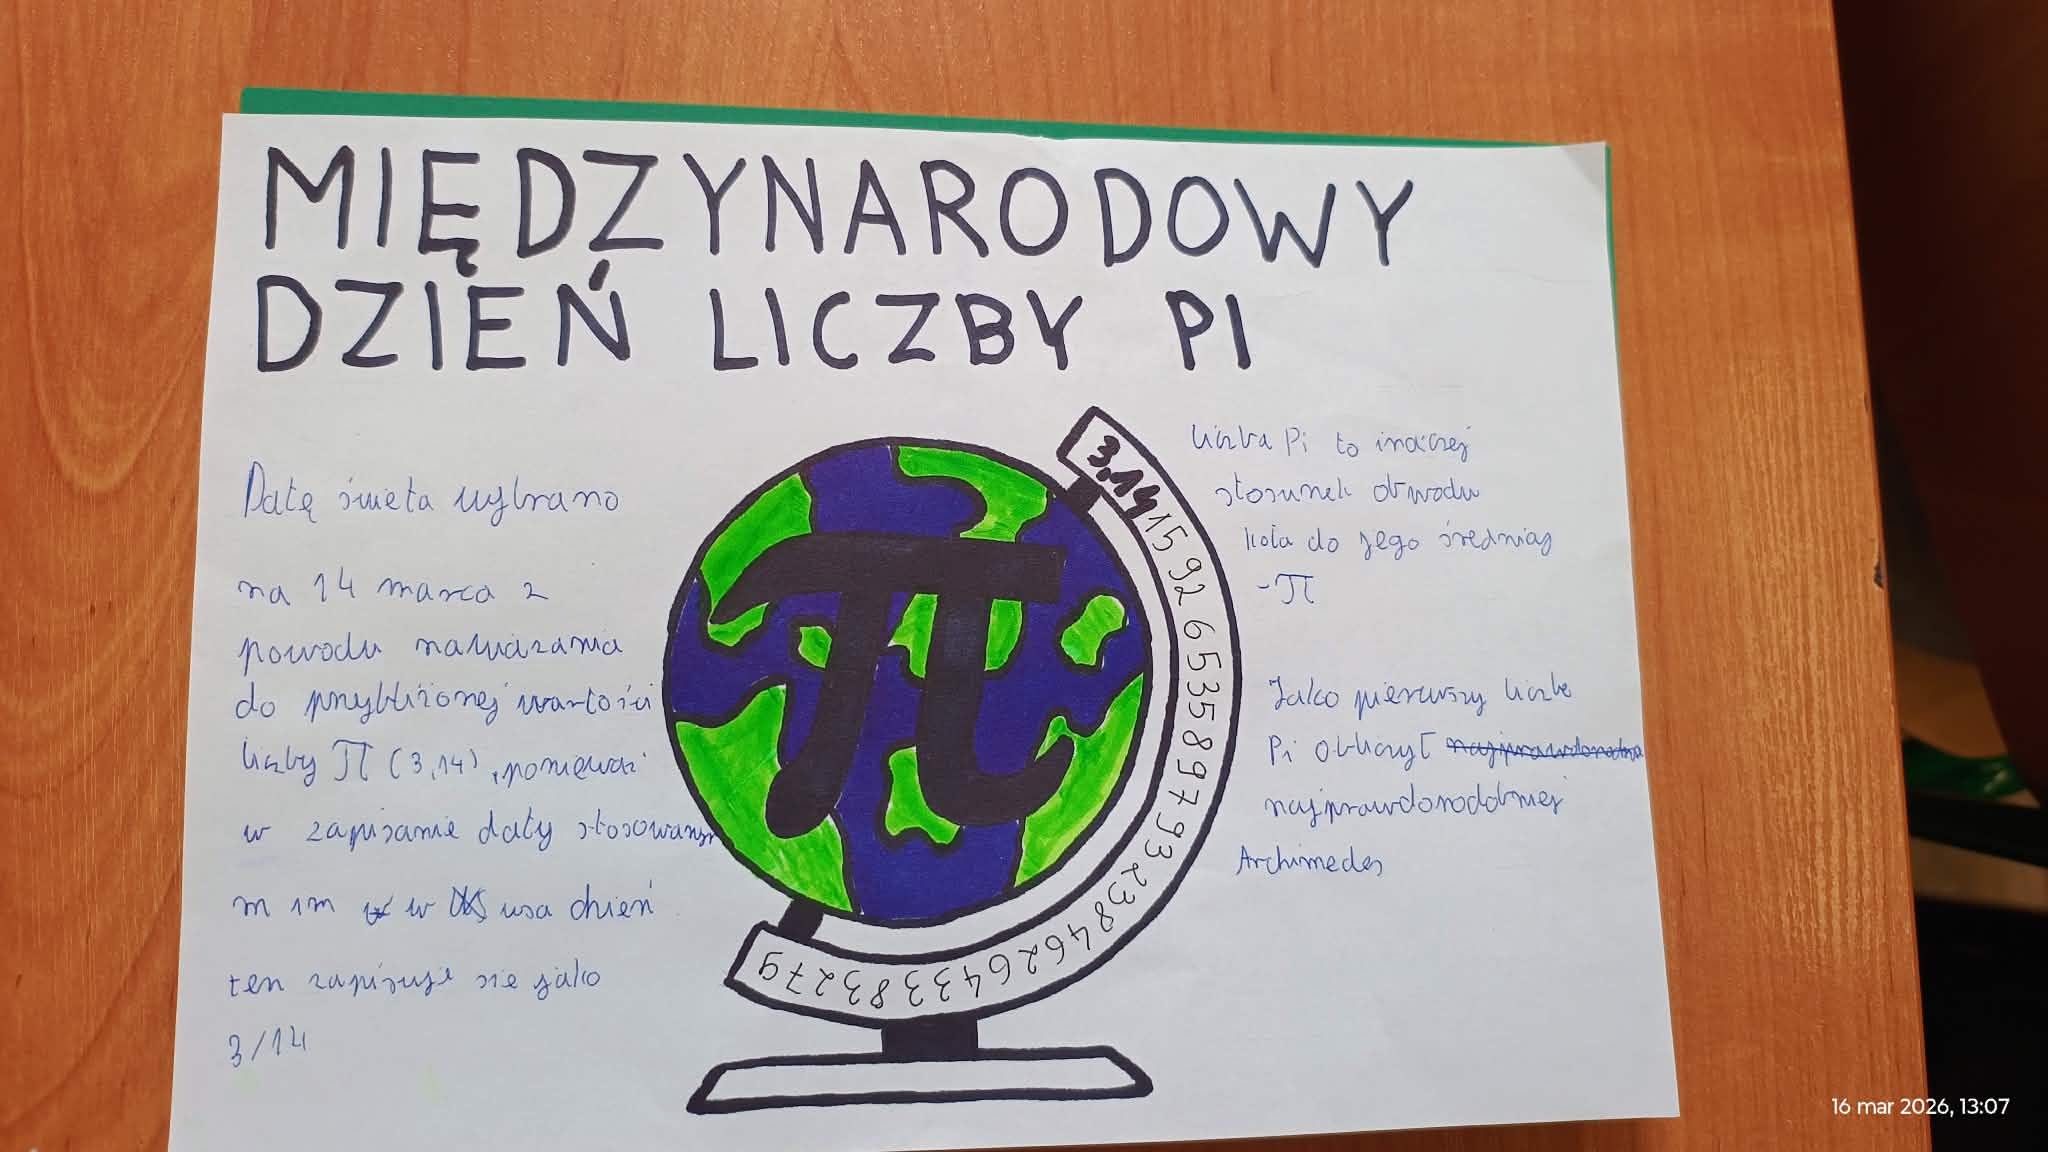 MIĘDZYNARODOWY
DZIEŃ LICZBY PI
Datę święta wybrano
na 14 marca z
powodu nawiązania
do przybliżonej wartości
liczby π (3,14), ponieważ
w zapisanie daty stosowanym
m im w usa dzień
ten zapisuje się jako
3/14
3,14159265358979323846264338327 9
Liczba Pi to inaczej
stosunek obwodu
koła do jego średnicy
-π
Jako pierwszy liczbę
Pi obliczył
najprawdopodobniej
Archimedes
16 mar 2026, 13:07